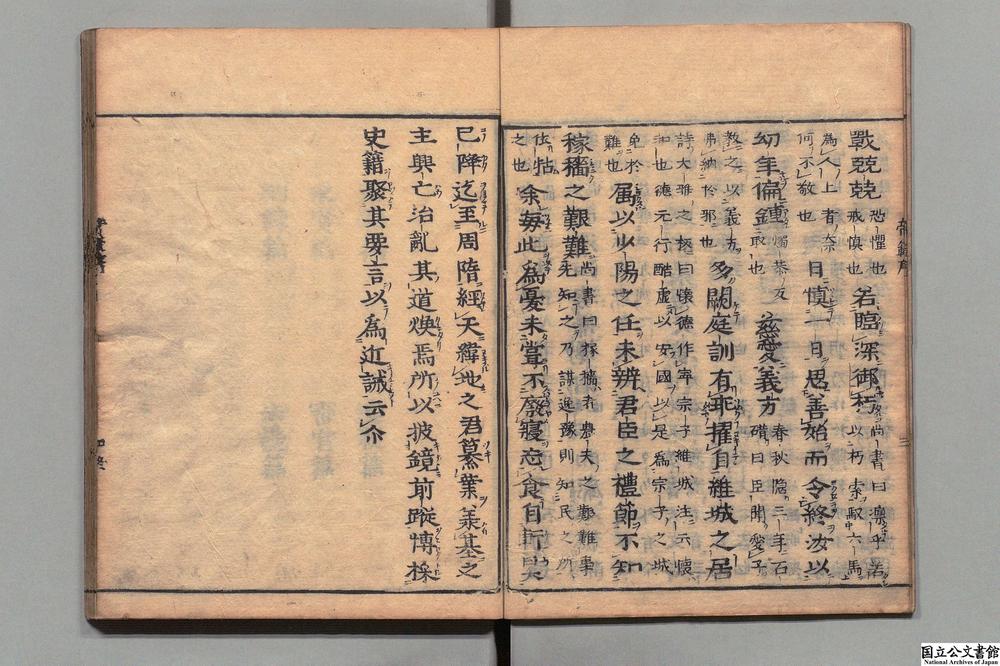 戰兢兢恐懼也戒慎也若臨深御朽尚書曰凛乎若以朽索馭六馬
為人上者奈何不敬也日慎一日思善始而令終汝以
幼年偏鍾燭恭反取也慈愛義方春秋隱三年石碏曰臣聞愛子
教之以義方弗納於邪也多闕庭訓有乖擢自維城之居
詩大雅之板曰懷德作寧宗子維城注云懷和也德元行酷虐以安國以是為宗子之城
免於難也属以少陽之任未辨君臣之禮節不知
稼穡之艱難尚書曰稼穡者農夫之艱難事先知之乃謀逸豫則知民之所
依怙之也余每此為憂未嘗不廢寝忘食自軒昊
已降迄至周隋經天緯地之君纂業羕基之
主興亡治亂其道煥焉所以披鏡前蹤博採
史籍聚其要言以為近誡云介
帝鑒序
三
国立公文書館
National Archives of Japan